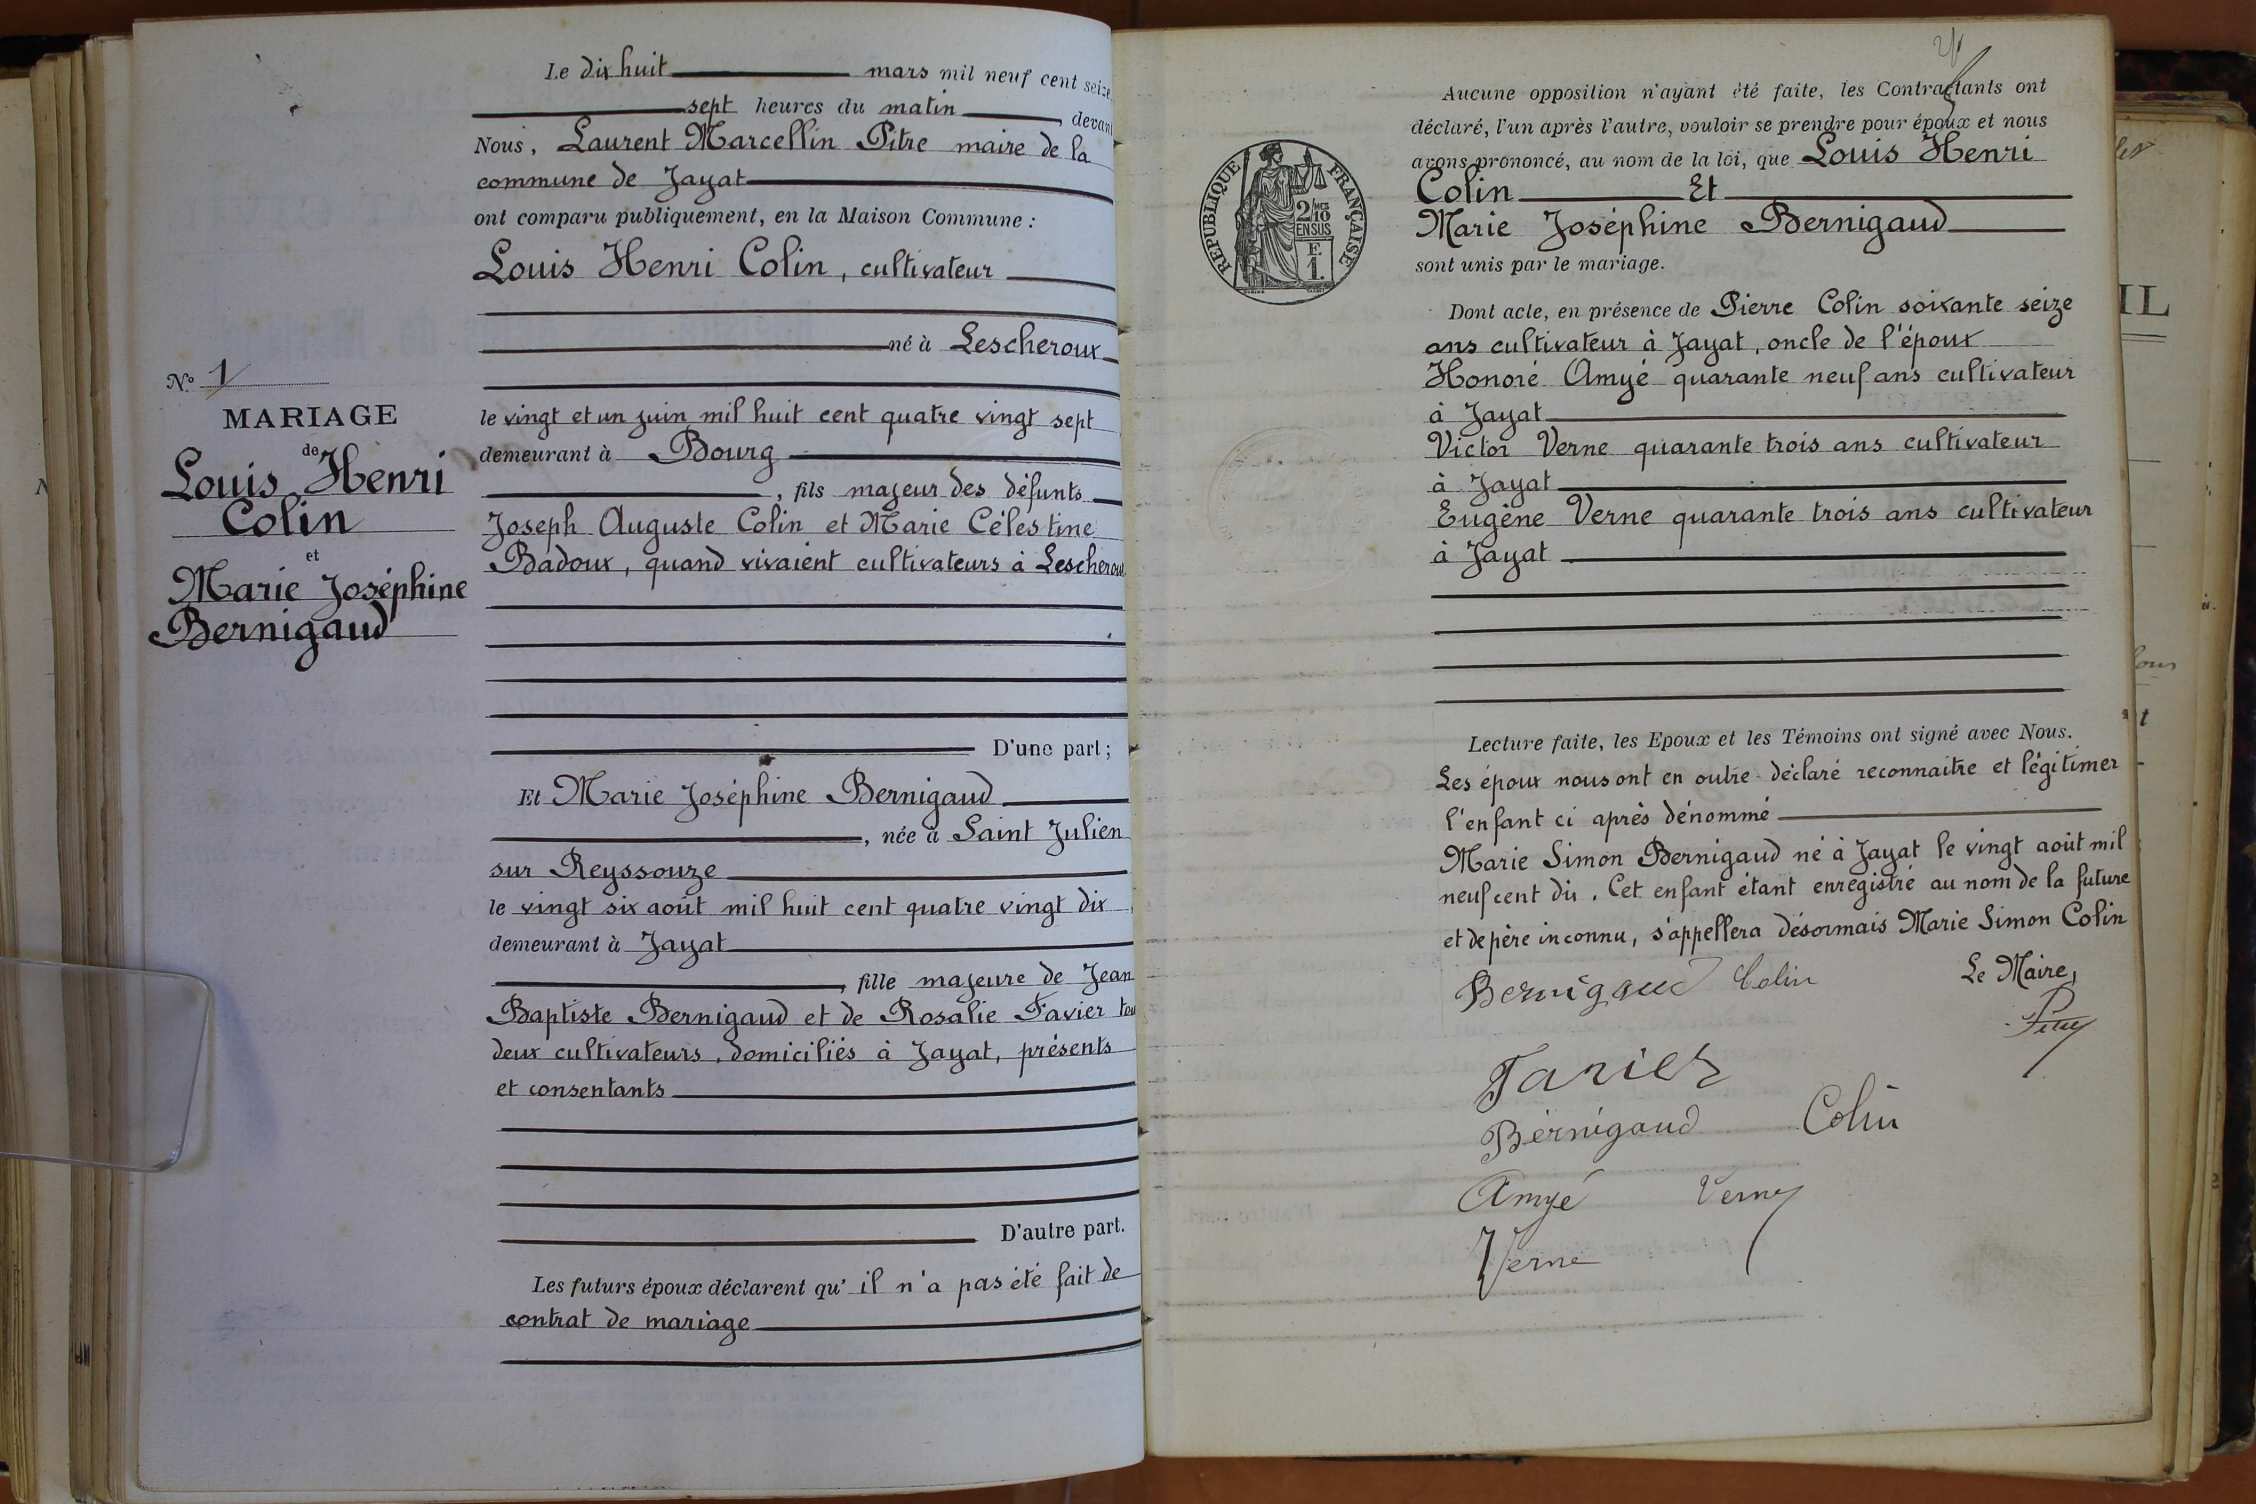 Le dix huit mars mil neuf cent seize,
sept heures du matin, devant
Nous, Laurent Marcellin Pitre maire de la
commune de Jayat
ont comparu publiquement, en la Maison Commune :
Louis Henri Colin, cultivateur
né à Lescheroux
le vingt et un juin mil huit cent quatre vingt sept
demeurant à Bourg
, fils majeur des défunts
Joseph Auguste Colin et Marie Célestine
Badoux, quand vivaient cultivateurs à Lescheroux
D'une part ;
Et Marie Joséphine Bernigaud
, née à Saint Julien
sur Reyssouze
le vingt six août mil huit cent quatre vingt dix
demeurant à Jayat
, fille majeure de Jean
Baptiste Bernigaud et de Rosalie Favier tous
deux cultivateurs, domiciliés à Jayat, présents
et consentants
D'autre part.
Les futurs époux déclarent qu' il n'a pas été fait de
contrat de mariage
No 1
MARIAGE
de
Louis Henri
Colin
et
Marie Joséphine
Bernigaud
Aucune opposition n'ayant été faite, les Contractants ont
déclaré, l'un après l'autre, vouloir se prendre pour époux et nous
avons prononcé, au nom de la loi, que Louis Henri
Colin Et
Marie Joséphine Bernigaud
sont unis par le mariage.
RÉPUBLIQUE FRANÇAISE
2/10 MES
EN SUS
F.
1.
Dont acte, en présence de Pierre Colin soixante seize
ans cultivateur à Jayat, oncle de l'époux
Honoré Amyé quarante neuf ans cultivateur
à Jayat
Victor Verne quarante trois ans cultivateur
à Jayat
Eugène Verne quarante trois ans cultivateur
à Jayat
Lecture faite, les Epoux et les Témoins ont signé avec Nous.
Les époux nous ont en outre déclaré reconnaitre et légitimer
l'enfant ci après dénommé
Marie Simon Bernigaud né à Jayat le vingt août mil
neuf cent dix. Cet enfant étant enregistré au nom de la future
et de père inconnu, s'appellera désormais Marie Simon Colin
Bernigaud Colin Le Maire,
Favier
Bernigaud Colin
Amyé Verne
Verne